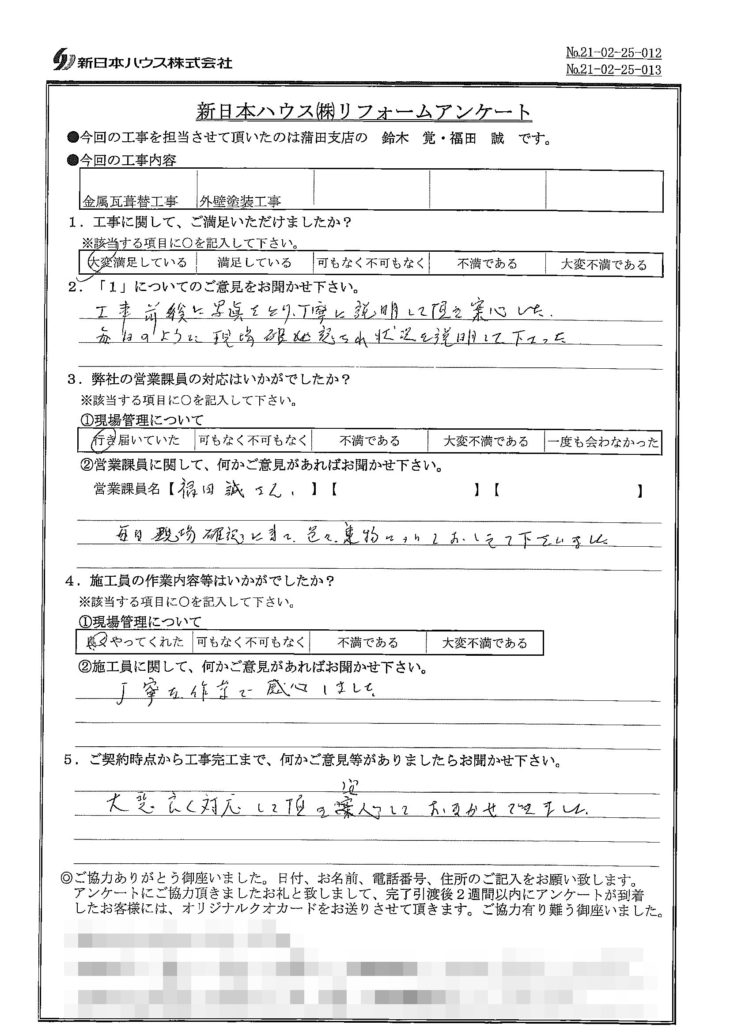 新日本ハウス株式会社
No.21-02-25-012
No.21-02-25-013
新日本ハウス㈱リフォームアンケート
●今回の工事を担当させて頂いたのは蒲田支店の 鈴木 覚・福田 誠 です。
●今回の工事内容
金属瓦葺替工事 外壁塗装工事
1．工事に関して、ご満足いただけましたか？
※該当する項目に○を記入して下さい。
大変満足している 満足している 可もなく不可もなく 不満である 大変不満である
2．「1」についてのご意見をお聞かせ下さい。
工事前後に写真をとり、丁寧に説明して頂き安心した。
毎日のように現場確認され状況を説明して下さった
3．弊社の営業課員の対応はいかがでしたか？
※該当する項目に○を記入して下さい。
①現場管理について
行き届いていた 可もなく不可もなく 不満である 大変不満である 一度も会わなかった
②営業課員に関して、何かご意見があればお聞かせ下さい。
営業課員名【福田誠さん 】【 】【 】
毎日現場確認に来て、色々 について おしえて下さいました
4．施工員の作業内容等はいかがでしたか？
※該当する項目に○を記入して下さい。
①現場管理について
良くやってくれた 可もなく不可もなく 不満である 大変不満である
②施工員に関して、何かご意見があればお聞かせ下さい。
丁寧な作業で感心しました
5．ご契約時点から工事完工まで、何かご意見等がありましたらお聞かせ下さい。
大変良く対応して頂き安心しておまかせできました。
◎ご協力ありがとう御座いました。日付、お名前、電話番号、住所のご記入をお願い致します。
アンケートにご協力頂きましたお礼と致しまして、完了引渡後２週間以内にアンケートが到着
したお客様には、オリジナルクオカードをお送りさせて頂きます。ご協力有り難う御座いました。